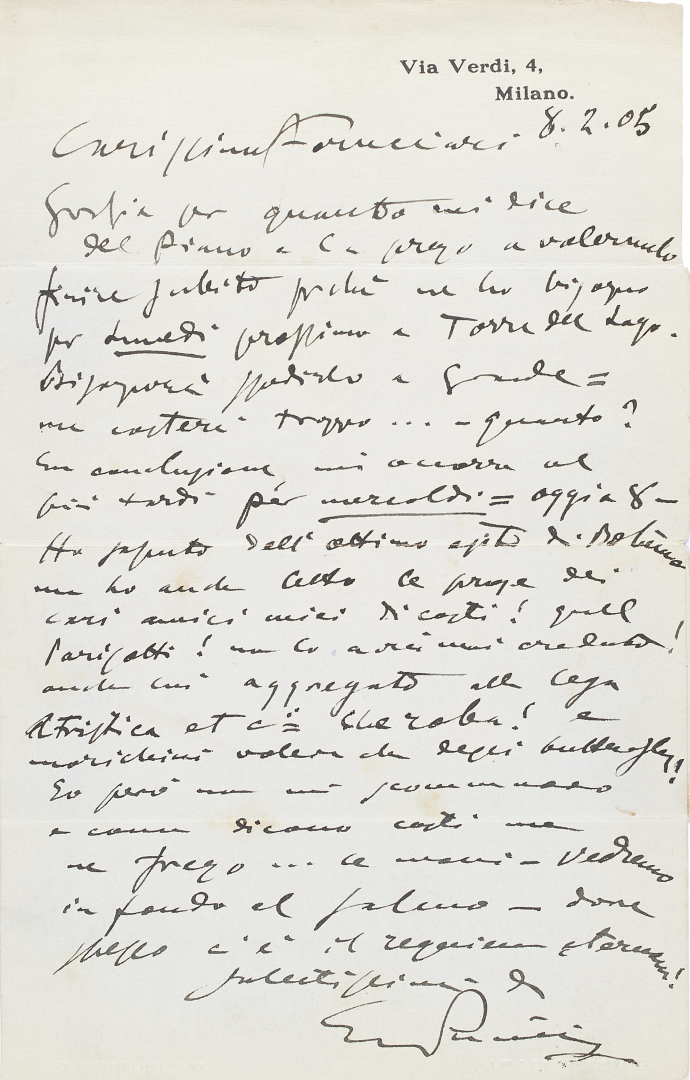 Via Verdi, 4,
Milano.
8. 2. 05
Carissimo
Grazia per quanto mi dice
del Piano e La prego a volermelo
finire subito perché ne ho bisogno
per lunedì prossimo a Torre del Lago.
Bisognerà spedirlo a Grande =
me costerà troppo ... - quanto?
In conclusione mi occorre al
più tardi per mercoldì = oggi a 8 -
Ho saputo dell' ottimo esito di Bohème
ma ho anche letto le prose dei
cari amici miei di costì! quel
Parisotti! non lo avrei mai creduto!
anche lui aggregato alla lega
Artistica et cª = che roba! e
morichini voleva che dessi butterfly!
Io però non mi scommodo
e come dicono costì me
ne frego ... le mani - Vedremo
in fondo al salmo - dove
spesso c'è il requiem eternam!
salutissimi di
G Puccini